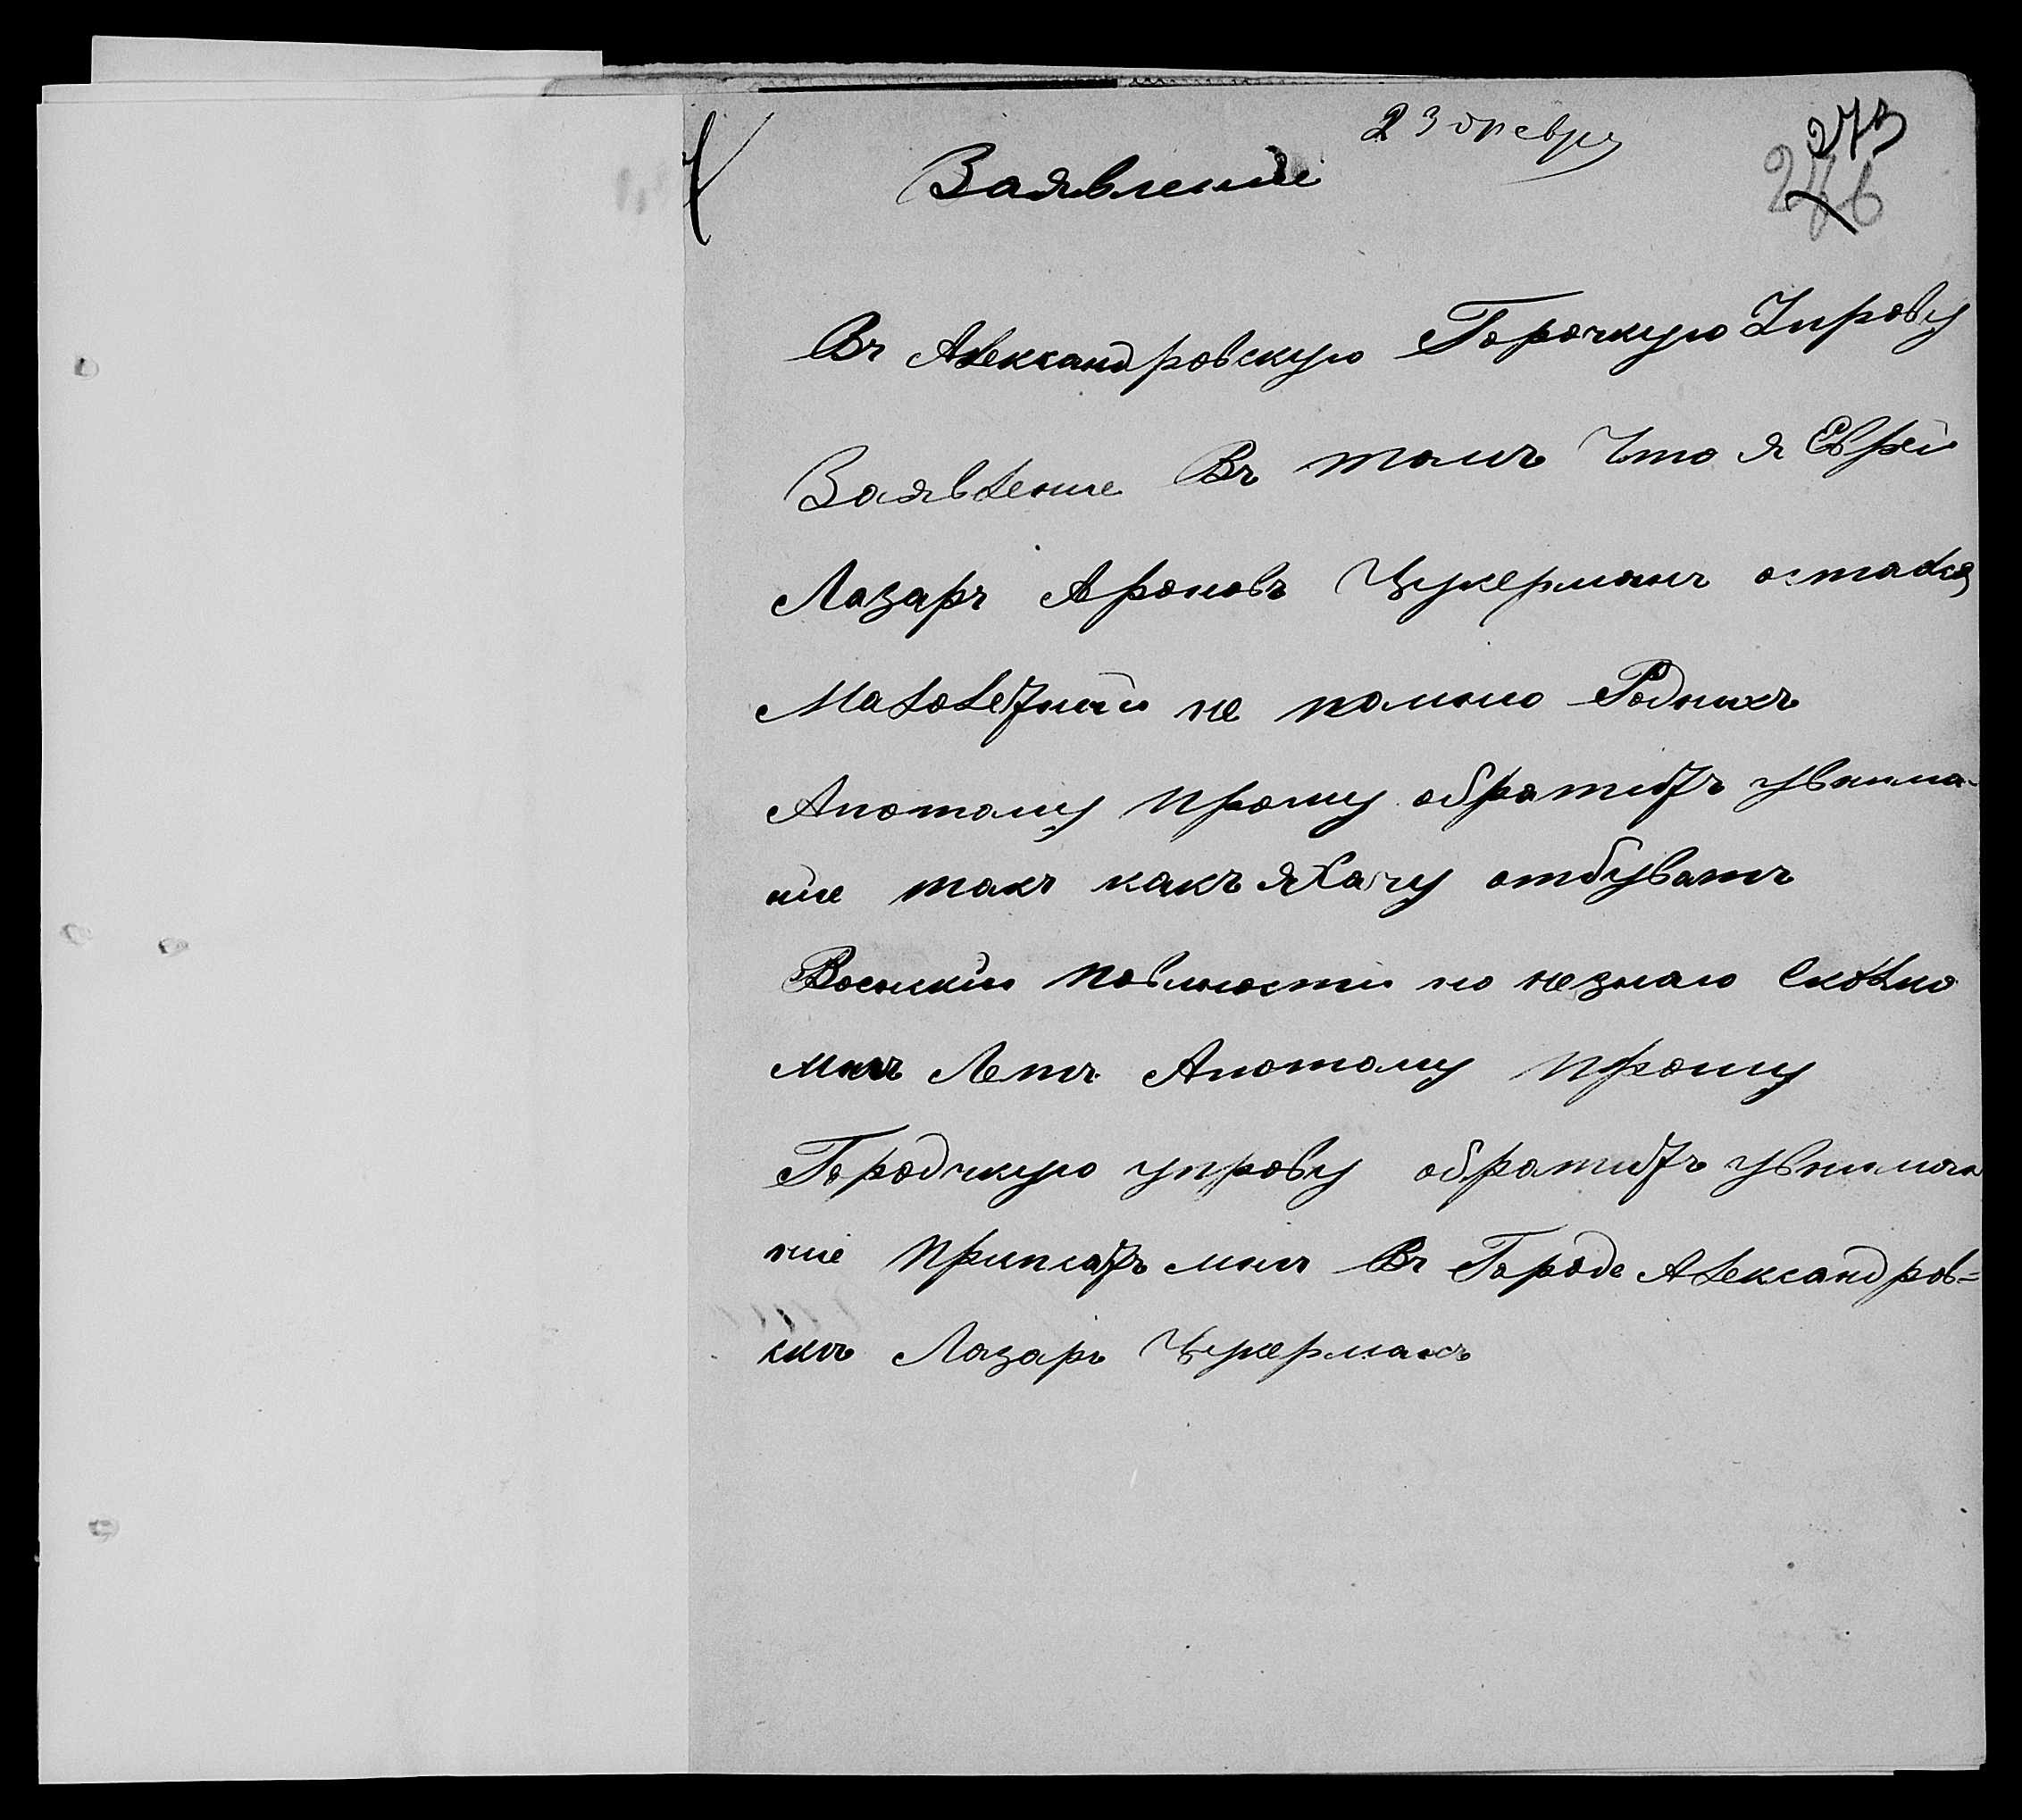 23 февря
273
276
Заявление
Въ Александровскую Горочкую Упровy
Заявление Въ томъ Что я Еврей
Лазарь Ароновъ Цукерманъ остался
Малолетний не помню Родныхъ
Апотому прошу обратить увнима-
ние такъ какъ яхачу отбуватъ
Военский повиности но незнаю Сколко
мнъ Летъ Апотому прошу
Городчкую управу обратить увниман
ние Приписать мнъ Въ Городе Александров=
скъ Лазарь Цукерманъ